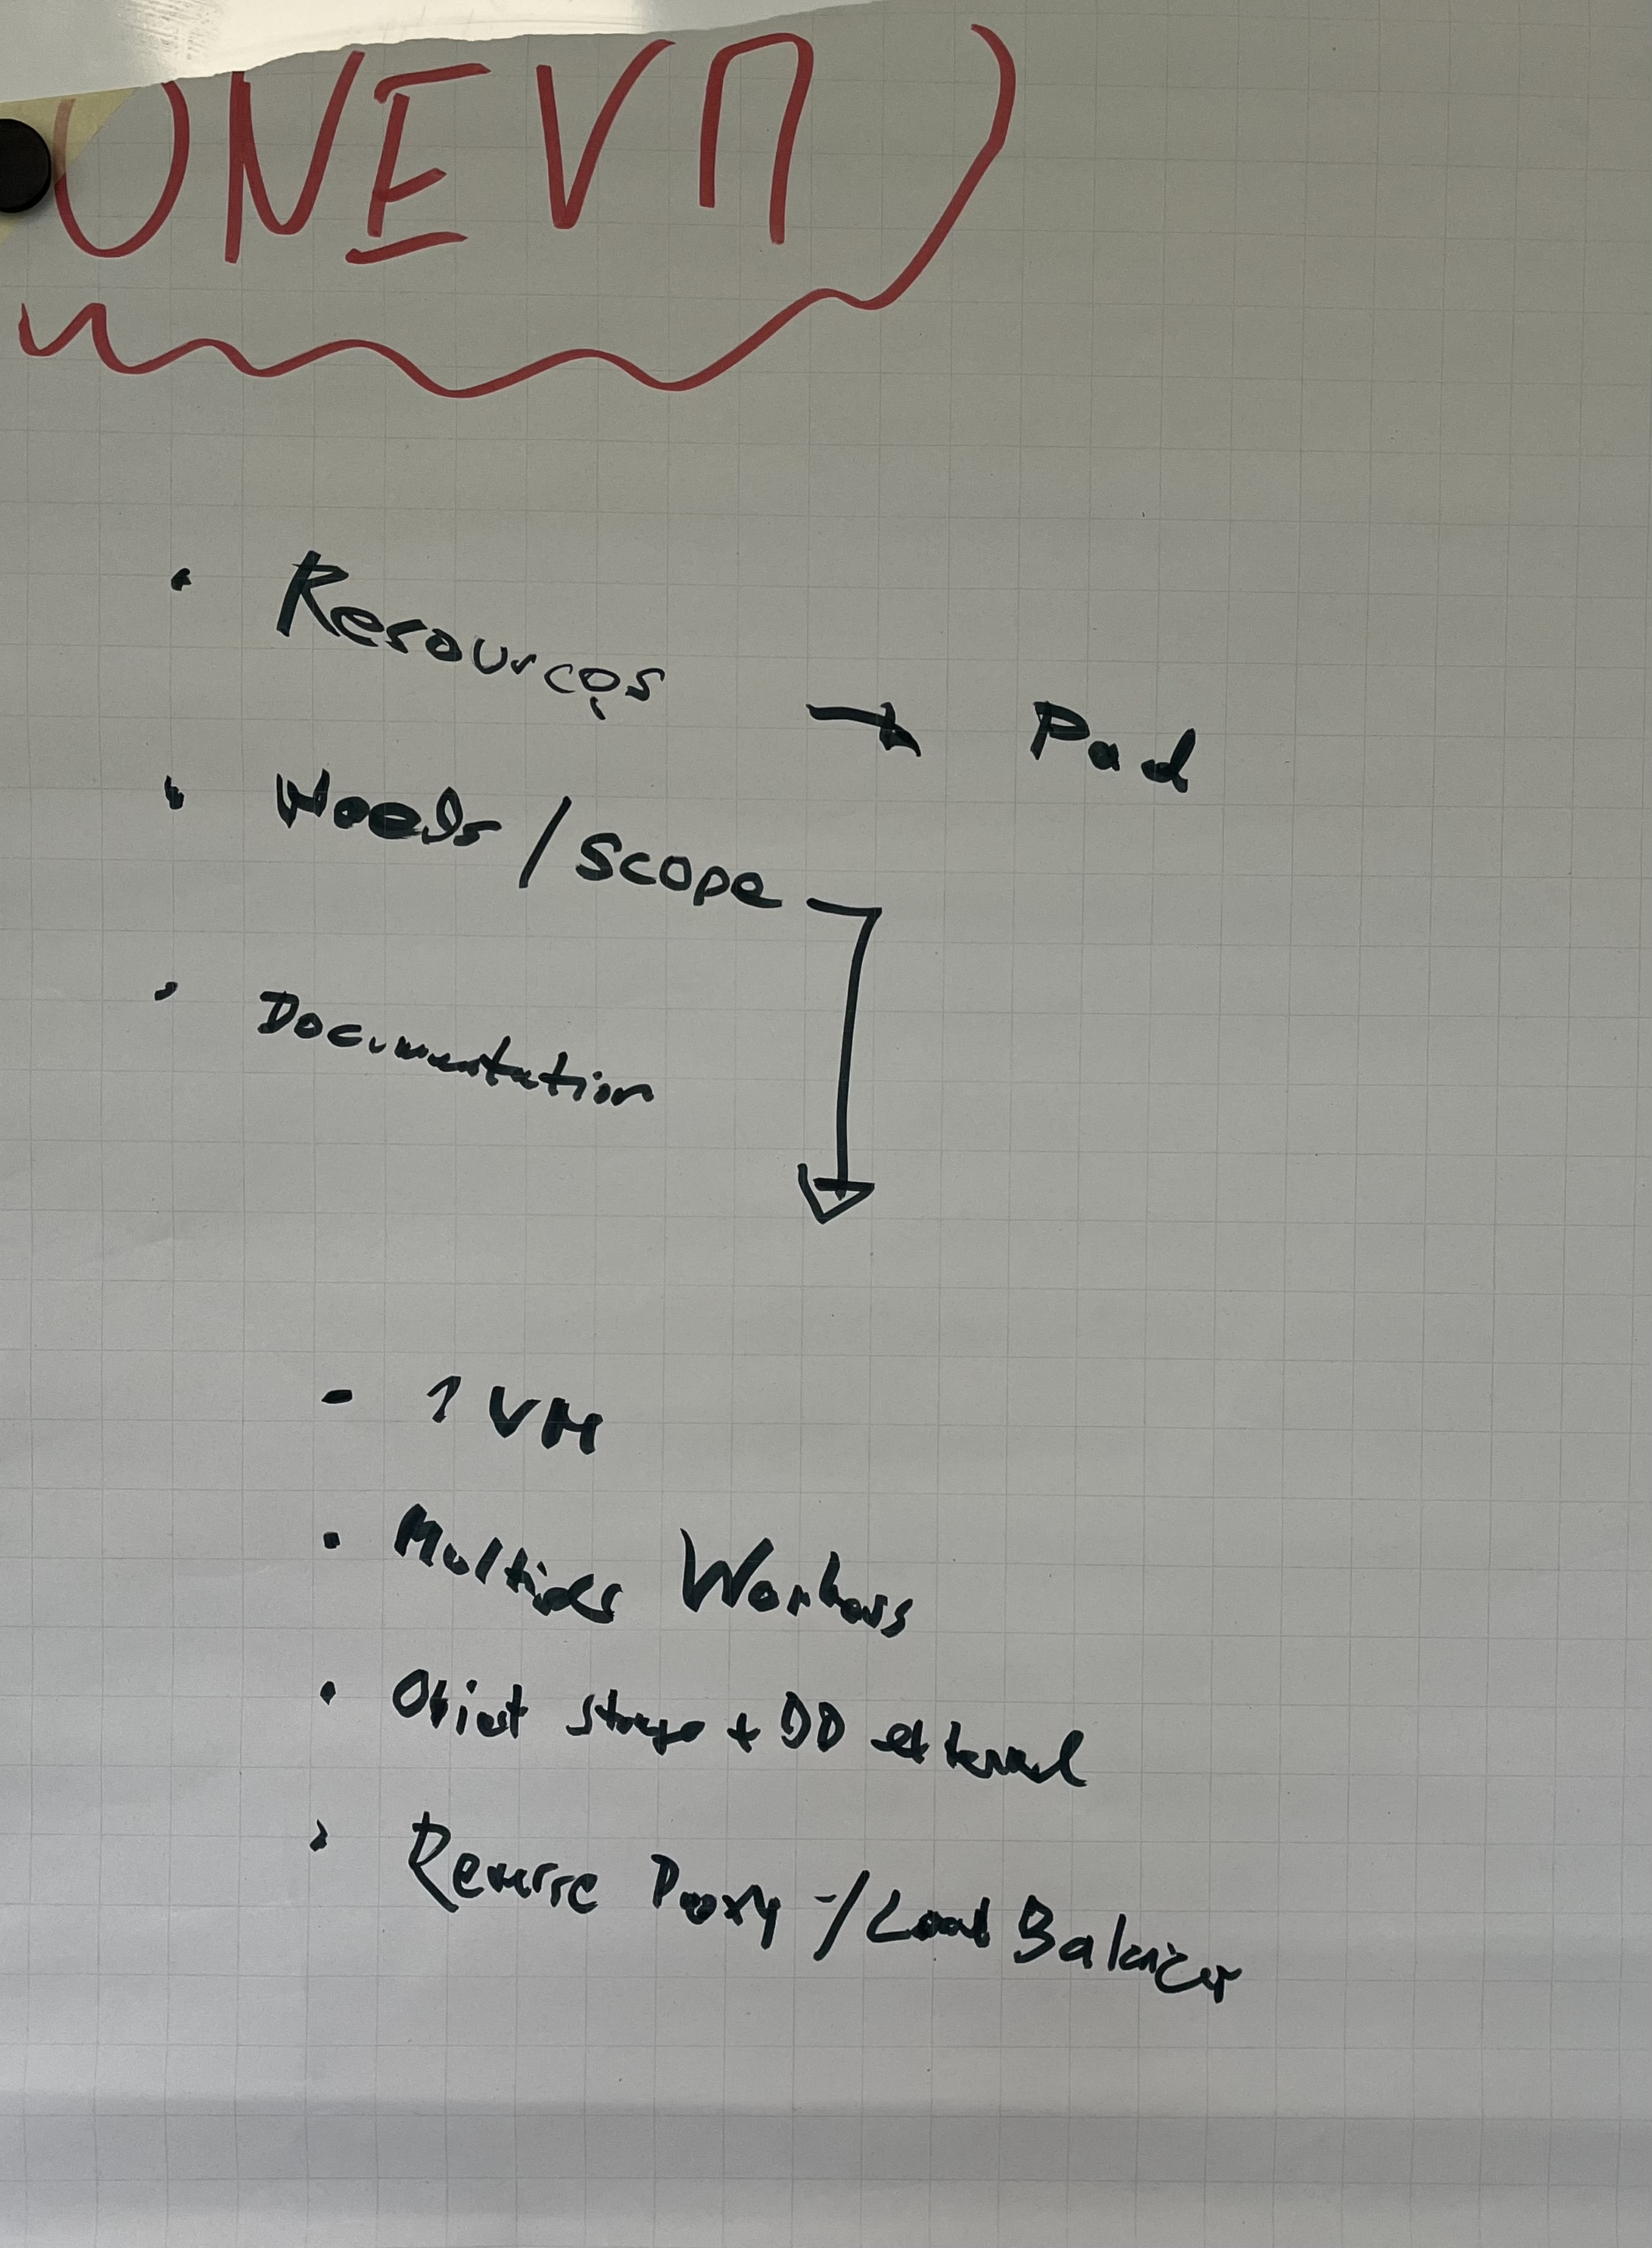 ONEVM
• Resources → Pad
• Needs / Scope
• Documentation
- 1 VM
• Multiple Workers
• Object Storage + DB external
• Reverse Proxy -/Load Balancer